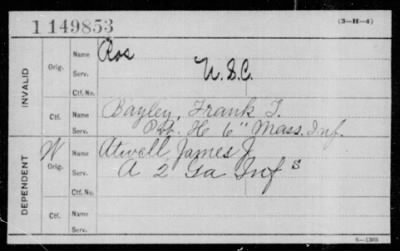 (3-H-4)
1149853
Name Ros
INVALID
Orig. Serv. U.S.C.
Ctf. No.
Name Bayley, Frank T.
Ctf. Serv. Pvt. H 6" Mass. Inf.
W Name Atwell, James J.
DEPENDENT
Orig. Serv. A 2 Ga Inf s
Ctf. No.
Name
Ctf. Serv.